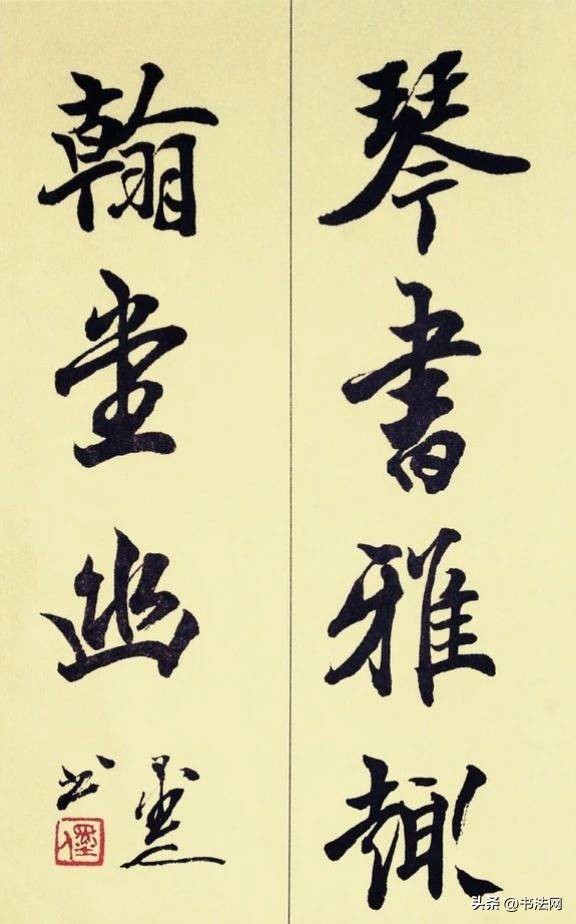 琴書雅趣
翰堂幽
书
头条 @书法网